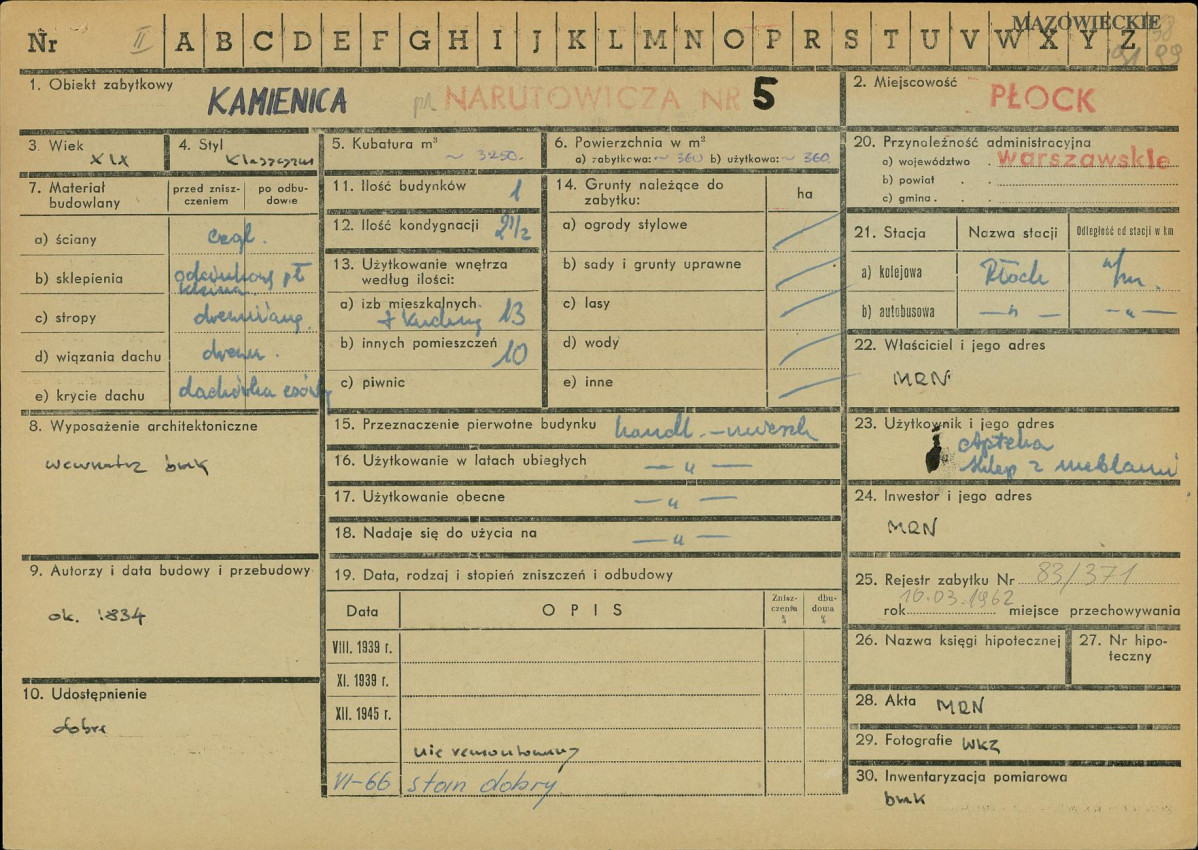 MAZOWIECKIE
Nr II A B C D E F G H I J K L M N O P R S T U V W X Y Z
1. Obiekt zabytkowy
KAMIENICA pl NARUTOWICZA NR 5
2. Miejscowość
PŁOCK
3. Wiek
XIX
4. Styl
5. Kubatura m³
~ 3250.
6. Powierzchnia w m²
a) zabytkowa: ~ 360 b) użytkowa: ~ 360
20. Przynależność administracyjna
a) województwo . warszawskie
b) powiat . .
c) gmina . .
7. Materiał budowlany
przed zniszczeniem
po odbudowie
a) ściany cegl.
b) sklepienia
c) stropy drewniane
d) wiązania dachu drewn.
e) krycie dachu dachówka
11. Ilość budynków 1
12. Ilość kondygnacji 2 1/2
13. Użytkowanie wnętrza
według ilości:
a) izb mieszkalnych 13
+ kuchny
b) innych pomieszczeń 10
c) piwnic
14. Grunty należące do
zabytku:
ha
a) ogrody stylowe
b) sady i grunty uprawne
c) lasy
d) wody
e) inne
21. Stacja Nazwa stacji Odległość od stacji w km
a) kolejowa Płock
b) autobusowa — „ — — „ —
22. Właściciel i jego adres
MRN
8. Wyposażenie architektoniczne
wewnątrz brak
15. Przeznaczenie pierwotne budynku handl. – mieszk
16. Użytkowanie w latach ubiegłych — „ —
17. Użytkowanie obecne — „ —
18. Nadaje się do użycia na — „ —
23. Użytkownik i jego adres
Apteka
sklep z meblami
24. Inwestor i jego adres
MRN
9. Autorzy i data budowy i przebudowy
ok. 1834
10. Udostępnienie
dobre
19. Data, rodzaj i stopień zniszczeń i odbudowy
Data OPIS Zniszczenia % dbudowa %
VIII. 1939 r.
XI. 1939 r.
XII. 1945 r.
nie remontowany
VI-66 stan dobry
25. Rejestr zabytku Nr 83/371
rok 10.03.1962 miejsce przechowywania
26. Nazwa księgi hipotecznej
27. Nr hipoteczny
28. Akta MRN
29. Fotografie WKZ
30. Inwentaryzacja pomiarowa
brak